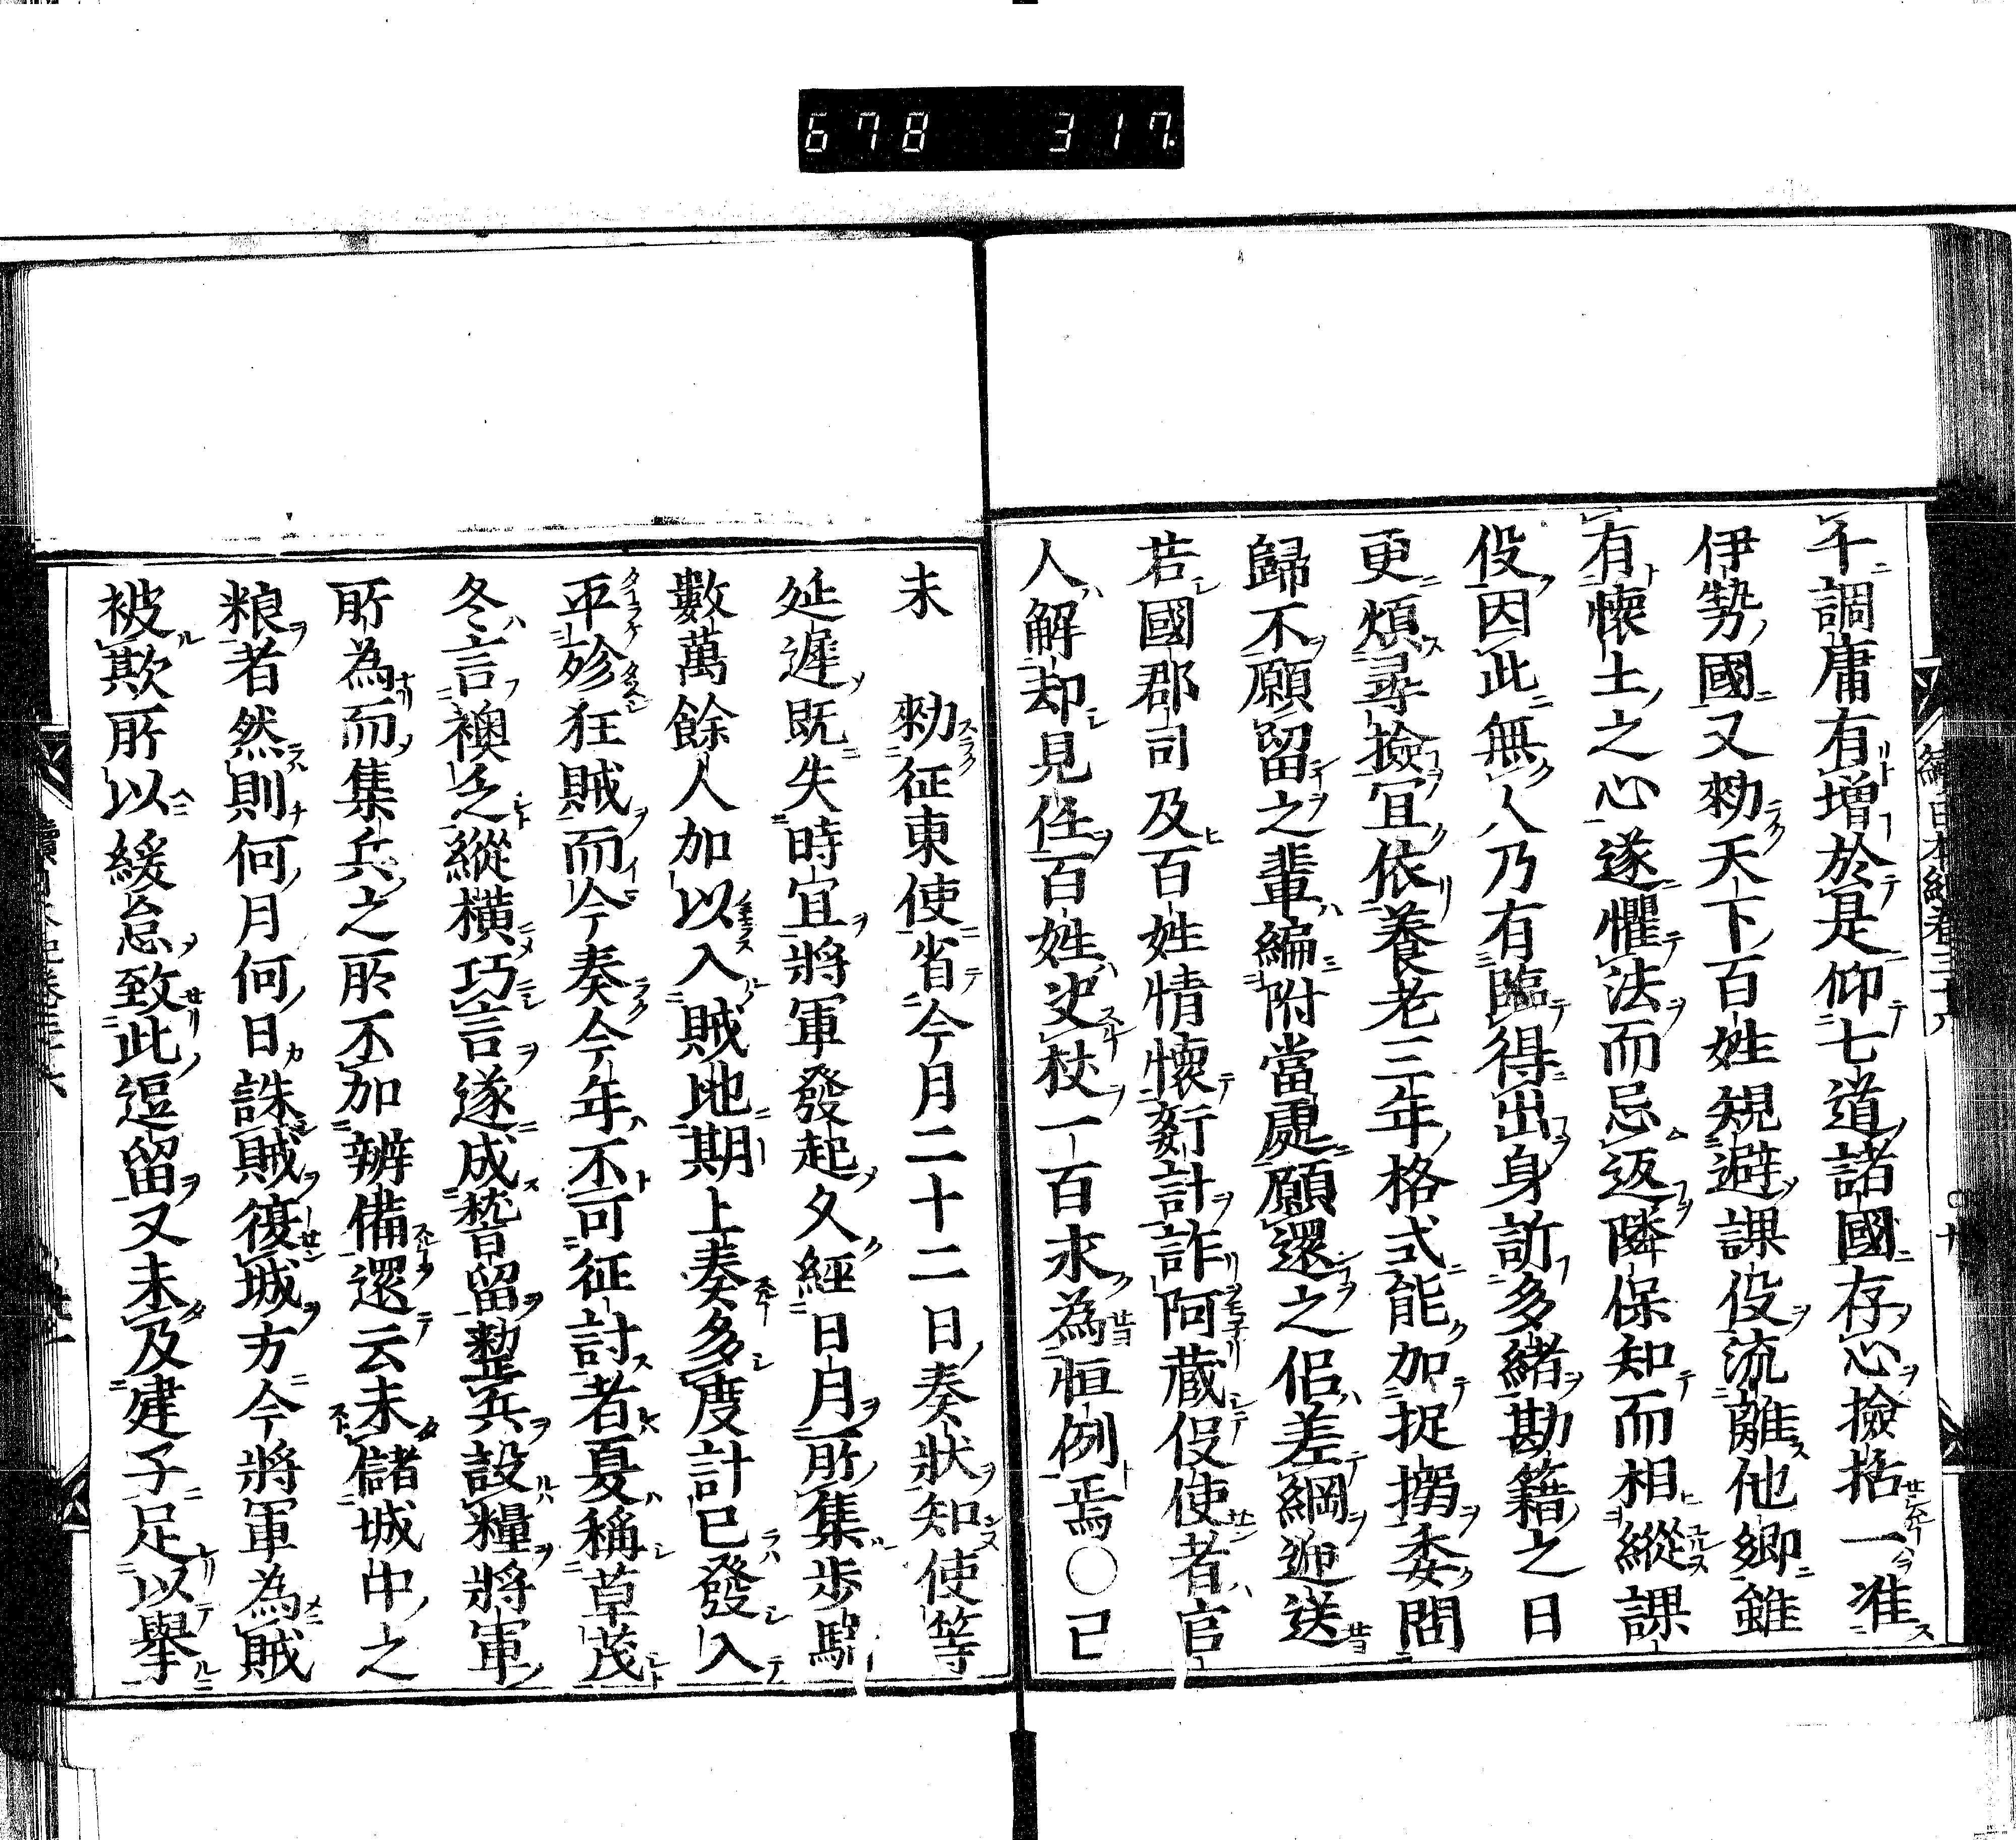 678 317.
年調庸有増於是仰七道諸國存心撿括一准
伊勢國又勑天下百姓規避課役流離他郷雖
有懷土之心遂懼法而忘返隣保知而相縱課
役因此無人乃有臨得出身訴多緒勘籍之日
更煩尋撿宜依養老三年格式能加捉搦委問
歸不願留之輩編附當處願還之侶差綱逓送
若國郡司及百姓情懷姧計詐阿蔵役使者官
人解却見任百姓决杖一百永為恒例焉○己
未 勑征東使省今月二十二日奏狀知使等
延遲既失時宜將軍發起久經日月所集歩騎
數萬餘人加以入賊地期上奏多度計已發入
平殄狂賊而今奏今年不可征討者夏稱草茂
冬言襖乏縱横巧言遂成稽留整兵設糧將軍
所為而集兵之所不加辨備還云未儲城中之
粮者然則何月何日誅賊復城方今將軍為賊
被欺所以緩怠致此逗留又未及建子足以擧